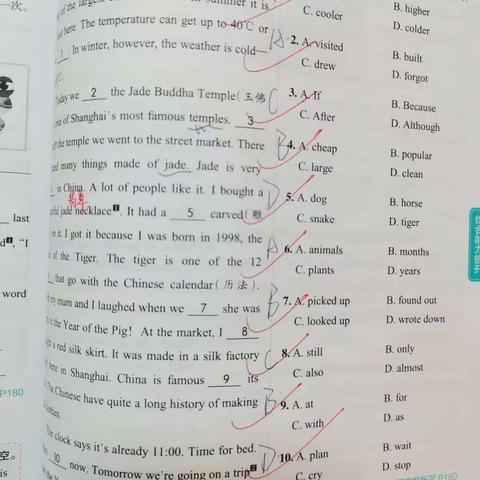 一次。
of the largest
summer it is
here. The temperature can get up to 40℃ or
1 . In winter, however, the weather is cold—
Today we 2 the Jade Buddha Temple(玉佛
one of Shanghai's most famous temples. 3
the temple we went to the street market. There
many things made of jade. Jade is very
in China. A lot of people like it. I bought a
jade necklace. It had a 5 carved(雕
on it. I got it because I was born in 1998, the
of the Tiger. The tiger is one of the 12
that go with the Chinese calendar(历法).
my mum and I laughed when we 7 she was
in the Year of the Pig! At the market, I 8
a red silk skirt. It was made in a silk factory
here in Shanghai. China is famous 9 its
The Chinese have quite a long history of making
clothes.
The clock says it's already 11:00. Time for bed.
10 now. Tomorrow we're going on a trip
C. cooler
B. higher
D. colder
2. A. visited
B. built
C. drew
D. forgot
3. A. If
B. Because
C. After
D. Although
4. A. cheap
B. popular
C. large
D. clean
5. A. dog
B. horse
C. snake
D. tiger
6. A. animals
B. months
C. plants
D. years
7. A. picked up
B. found out
C. looked up
D. wrote down
8. A. still
B. only
C. also
D. almost
9. A. at
B. for
C. with
D. as
10. A. plan
B. wait
C. cry
D. stop
A
C
B
D
A
B
C
B
D
last
"I
word
P180
空。
is
综合能力提升
P180